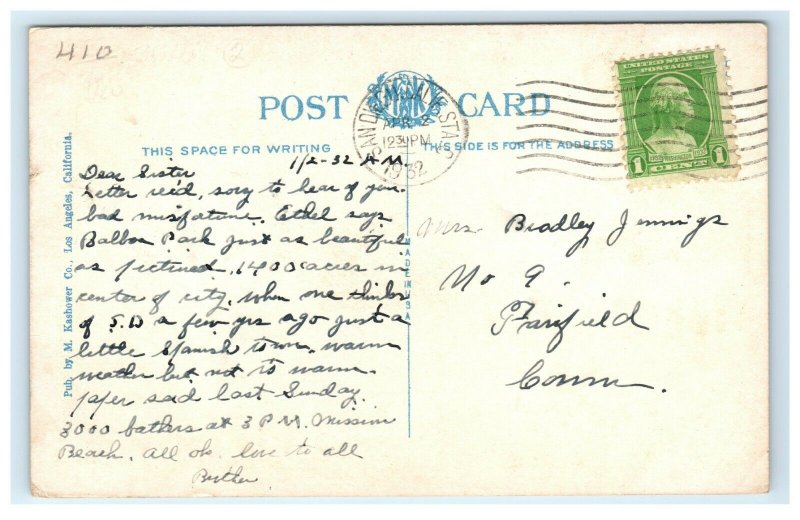 410
2
POST CARD
UNITED STATES
POSTAGE
1 CENT 1
SAN DIEGO, CALIF. STA.
APR 2
1230 PM
1932
THIS SPACE FOR WRITING
THIS SIDE IS FOR THE ADDRESS
Pub. by M. Kashower Co., Los Angeles, California.
MADE IN USA
1/2-32 A M
Dear Sister
Letter rec'd, sory to hear of your
bad misfortune. Ethel says
Balboa Park just as beautiful
as pictured, 1400 acres in
center of city, when one thinks
of S.D a few yrs ago just a
little Spanish town. warm
weather but not to warm.
paper said last Sunday.
3000 bathers at 3 P M. Mission
Beach. all ok. love to all
Brother
Mrs. Bradley Jennings
No 9.
Fairfield
Conn.